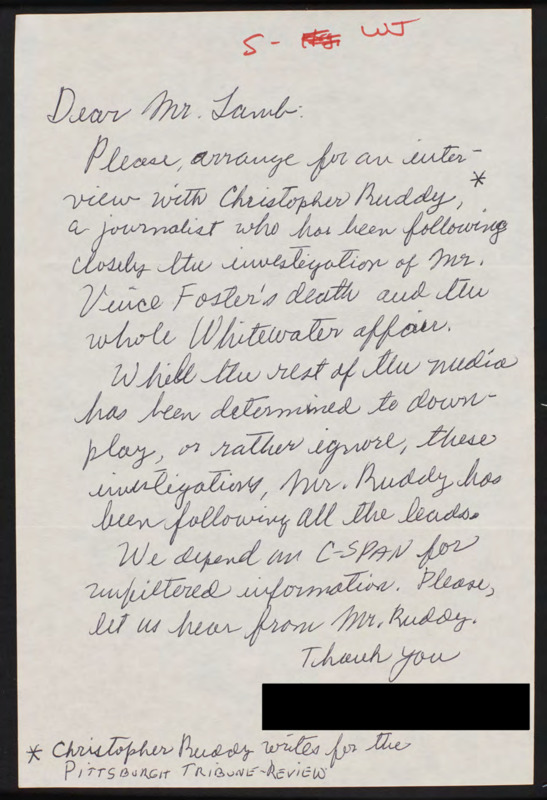 S - WJ
Dear Mr. Lamb:
Please, arrange for an inter-
view with Christopher Ruddy, *
a journalist who has been following
closely the investigation of Mr.
Vince Foster's death and the
whole Whitewater affair.
While the rest of the media
has been determined to down-
play, or rather ignore, these
investigations, Mr. Ruddy has
been following all the leads.
We depend on C-SPAN for
unfiltered information. Please,
let us hear from Mr. Ruddy.
Thank you
* Christopher Ruddy writes for the
PITTSBURGH TRIBUNE-REVIEW